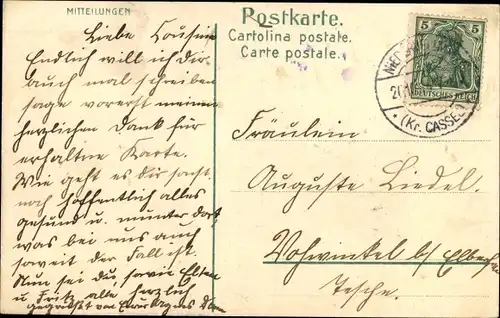 MITTEILUNGEN
Postkarte.
Cartolina postale.
Carte postale.
5 5
DEUTSCHES REICH
(Kr. CASSEL)
Liebe Cousine
Endlich will ich dir
auch mal schreiben
sage vorerst meinen
herzlichen Dank für
erhaltne Karte.
Wie geht es dir
noch hoffentlich alles
gesund u. munter dort
was bei uns auch
soweit der Fall ist.
Nun sei du, sowie Eltern
u. Fritz alle herzlich
gegrüsset von Agnes
Fräulein
Auguste Liedel.
Vohwinkel b/ Elberfeld
Tesche.